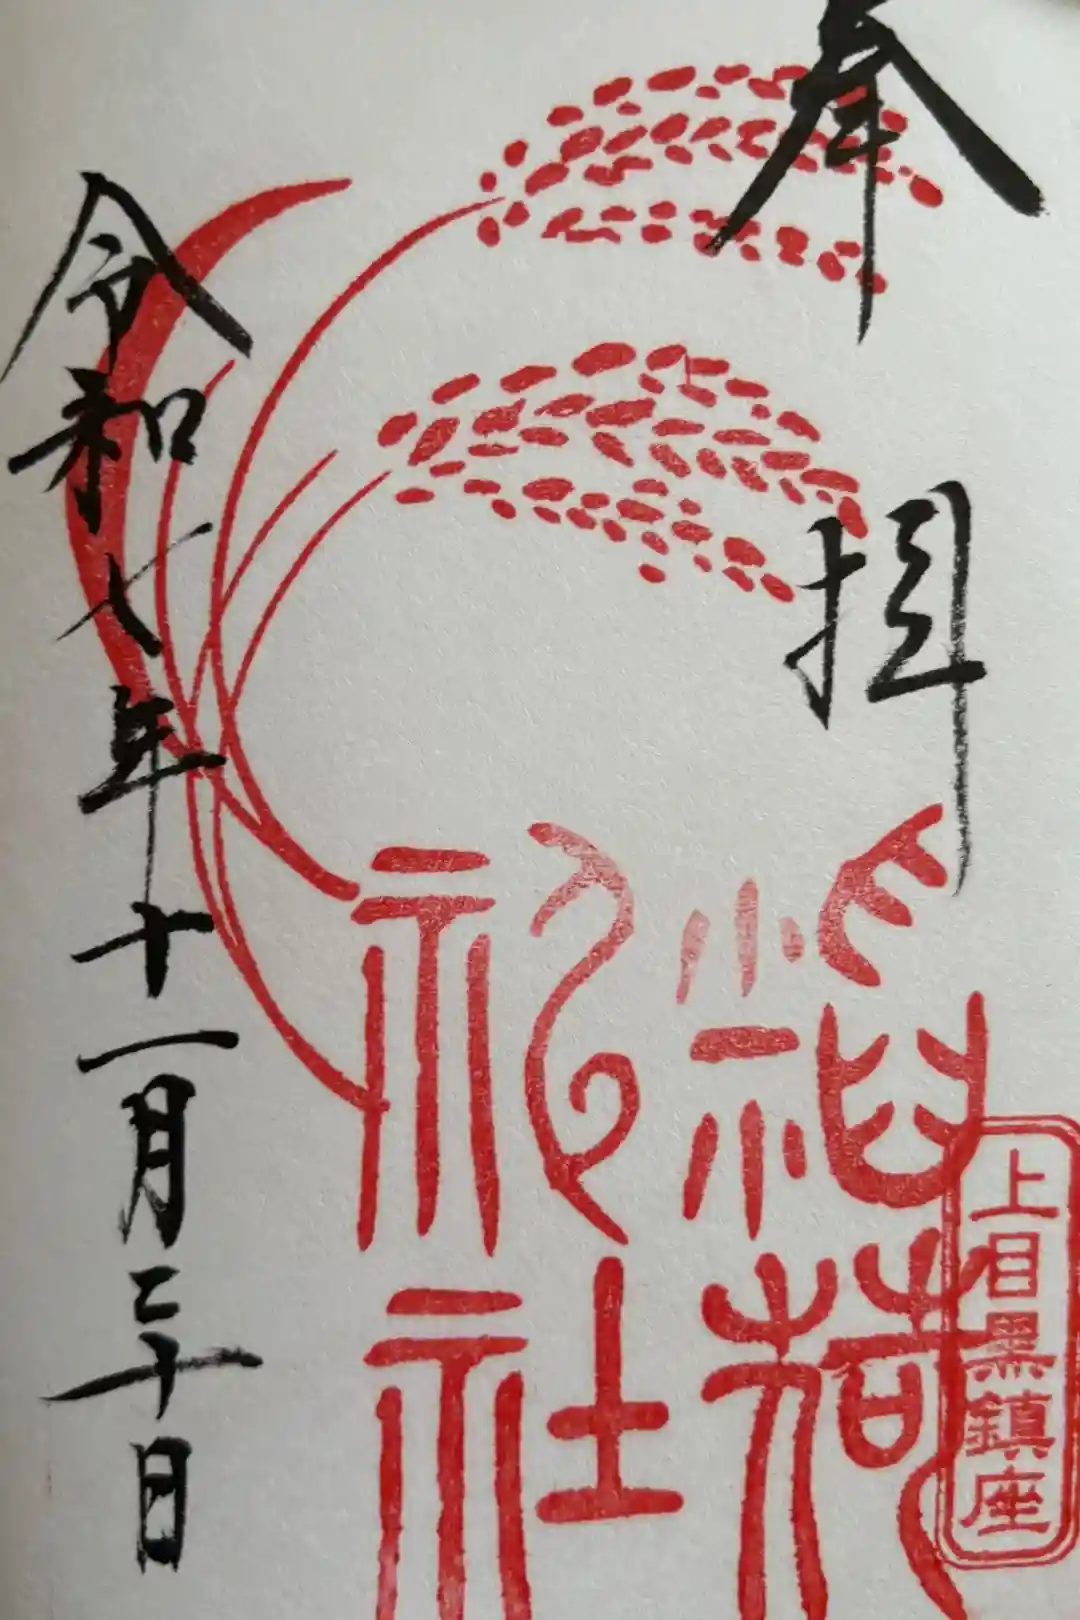 奉拝
上目黒鎮座
稲荷
神社
令和七年十一月三十日